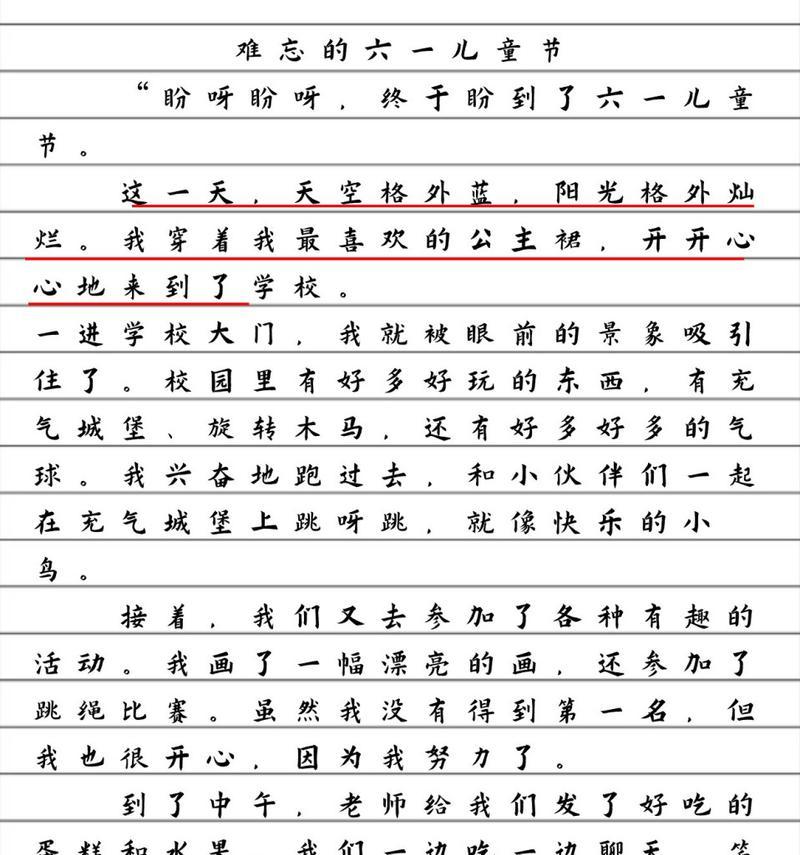 难忘的六一儿童节
“盼呀盼呀，终于盼到了六一儿童
节。
这一天，天空格外蓝，阳光格外灿
烂。我穿着我最喜欢的公主裙，开开心
心地来到了学校。
一进学校大门，我就被眼前的景象吸引
住了。校园里有好多好玩的东西，有充
气城堡、旋转木马，还有好多好多的气
球。我兴奋地跑过去，和小伙伴们一起
在充气城堡上跳呀跳，就像快乐的小
鸟。
接着，我们又去参加了各种有趣的
活动。我画了一幅漂亮的画，还参加了
跳绳比赛。虽然我没有得到第一名，但
我也很开心，因为我努力了。
到了中午，老师给我们发了好吃的
蛋糕和水果。我们一边吃一边聊天，笑